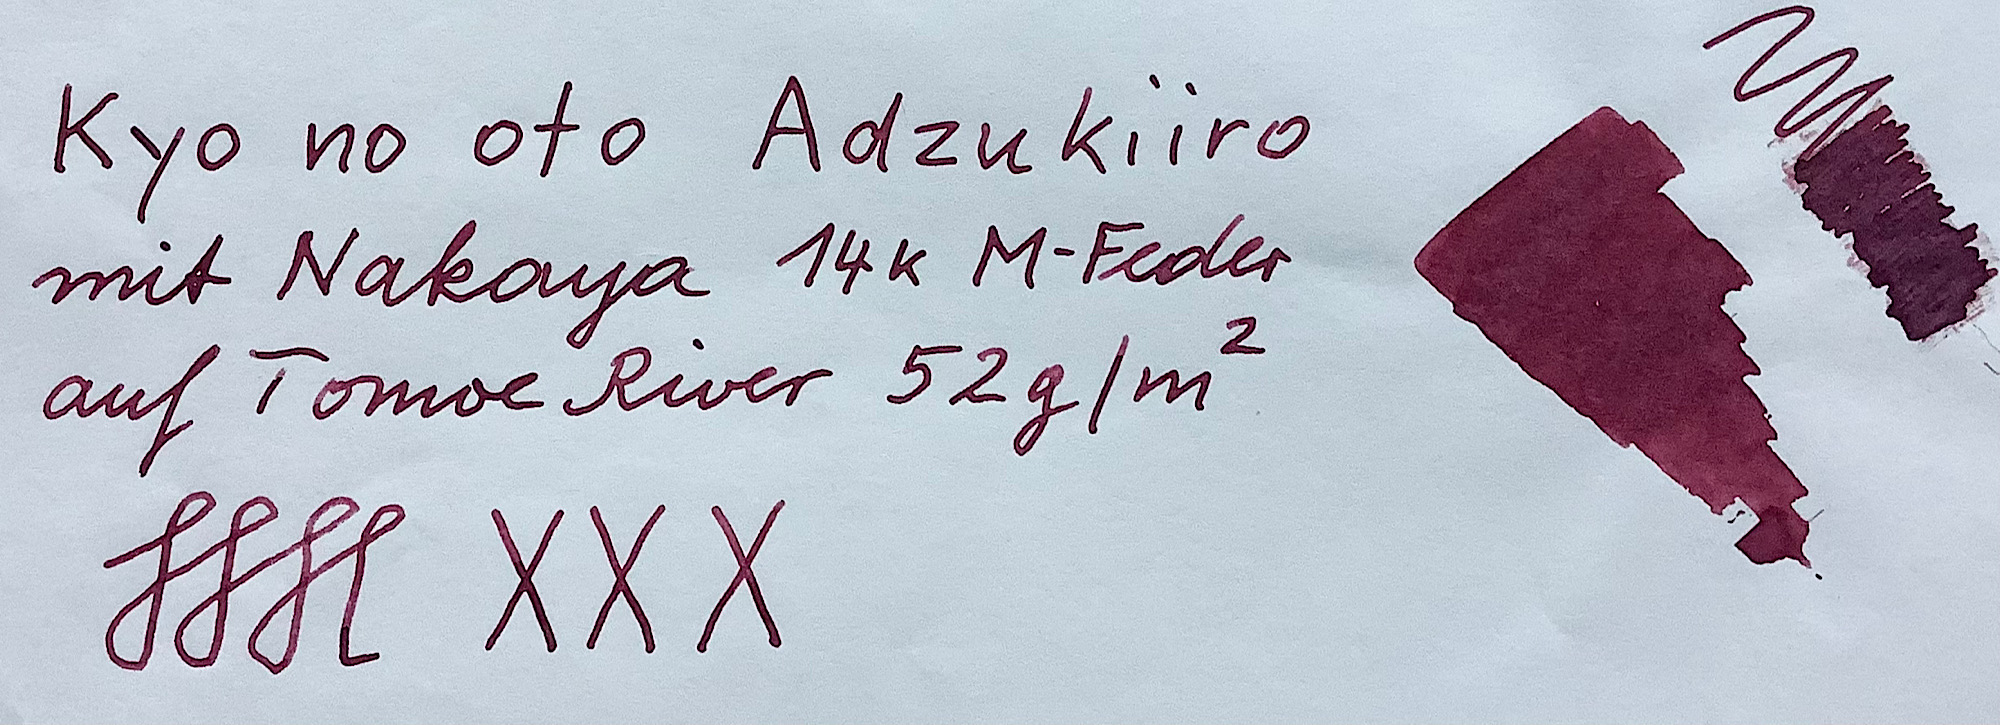 Kyo no oto Adzukiiro
mit Nakaya 14K M-Feder
auf Tomoe River 52g/m²
XXX